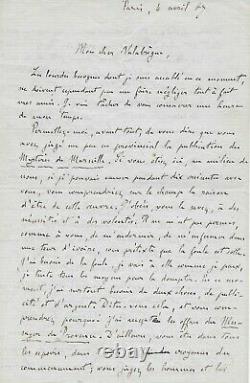 Paris, 4 avril 67
Mon cher Valabrègue,
Les lourdes besognes dont je suis accablé en ce moment,
ne doivent cependant pas me faire négliger tout à fait
mes amis. Je vais tâcher de vous consacrer une heure
de mon temps.
Permettez-moi, avant tout, de vous dire que vous
avez jugé un peu en provincial la publication des
Mystères de Marseille. Si vous étiez ici, au milieu de
nous, si je pouvais causer pendant dix minutes avec
vous, vous comprendriez sur le champ la raison
d'être de cette œuvre. J'obéis, vous le savez, à des
nécessités et à des volontés. Il ne m'est pas permis
comme à vous, de m'endormir, de m'enfermer dans
une tour d'ivoire, sous prétexte que la foule est sotte.
J'ai besoin de la foule, je vais à elle comme je peux,
je tente tous les moyens pour la dompter. En ce mo-
ment, j'ai surtout besoin de deux choses, de publi-
cité et d'argent. Dites-vous cela, et vous com-
prendrez pourquoi j'ai accepté les offres du Mes-
sager de Provence. D'ailleurs, vous êtes dans tous
les espoirs, dans croyances du
commencement; vous jugez les hommes et les